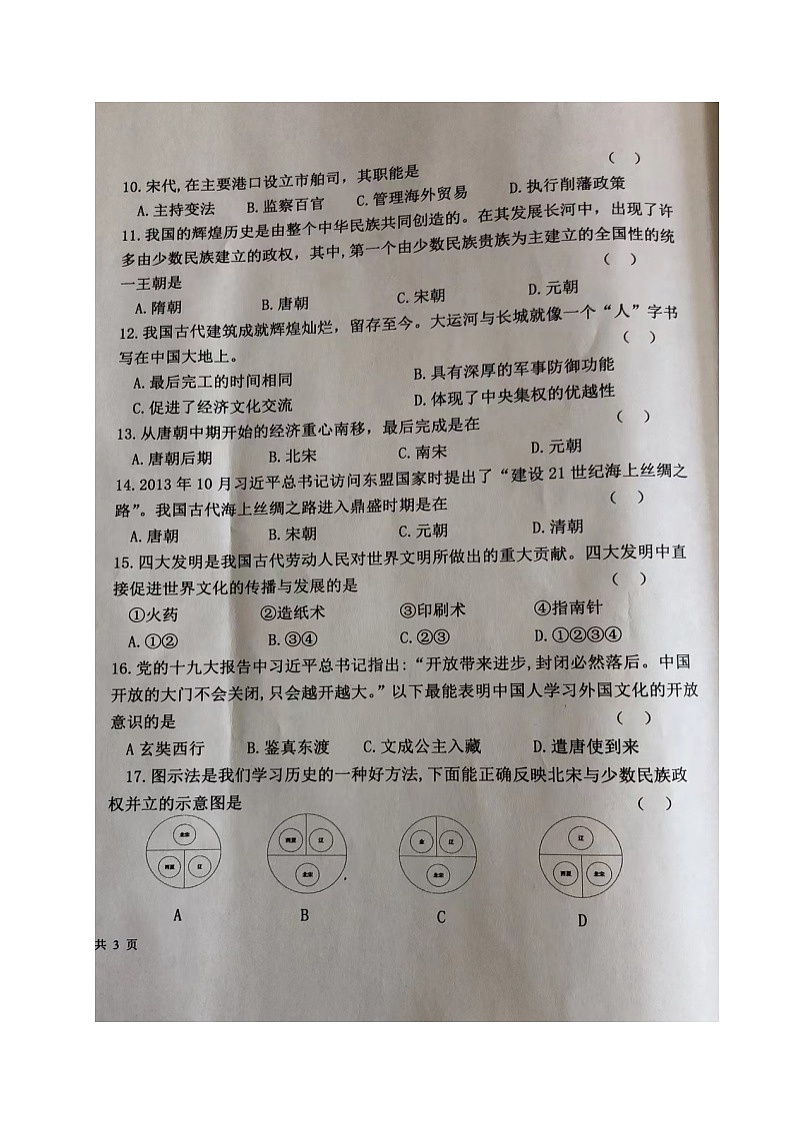 10.宋代,在主要港口设立市舶司，其职能是 （ ）
A.主持变法 B.监察百官 C.管理海外贸易 D.执行削藩政策
11.我国的辉煌历史是由整个中华民族共同创造的。在其发展长河中，出现了许
多由少数民族建立的政权，其中,第一个由少数民族贵族为主建立的全国性的统
一王朝是 （ ）
A.隋朝 B.唐朝 C.宋朝 D.元朝
12.我国古代建筑成就辉煌灿烂，留存至今。大运河与长城就像一个“人”字书
写在中国大地上。 （ ）
A.最后完工的时间相同 B.具有深厚的军事防御功能
C.促进了经济文化交流 D.体现了中央集权的优越性
13.从唐朝中期开始的经济重心南移，最后完成是在 （ ）
A.唐朝后期 B.北宋 C.南宋 D.元朝
14.2013年10月习近平总书记访问东盟国家时提出了“建设21世纪海上丝绸之
路”。我国古代海上丝绸之路进入鼎盛时期是在 （ ）
A.唐朝 B.宋朝 C.元朝 D.清朝
15.四大发明是我国古代劳动人民对世界文明所做出的重大贡献。四大发明中直
接促进世界文化的传播与发展的是 （ ）
①火药 ②造纸术 ③印刷术 ④指南针
A.①② B.③④ C.②③ D.①②③④
16.党的十九大报告中习近平总书记指出:“开放带来进步,封闭必然落后。中国
开放的大门不会关闭,只会越开越大。”以下最能表明中国人学习外国文化的开放
意识的是 （ ）
A玄奘西行 B.鉴真东渡 C.文成公主入藏 D.遣唐使到来
17.图示法是我们学习历史的一种好方法,下面能正确反映北宋与少数民族政
权并立的示意图是 （ ）
北宋 西夏 辽
西夏 辽 北宋
金 辽 北宋
辽 西夏 北宋
A B C D
共 3 页